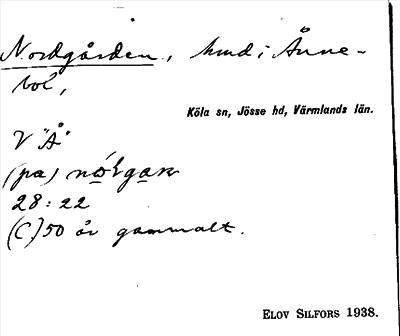 Nordgården, hmd i Ånne-
bol,
Köla sn, Jösse hd, Värmlands län.
V "Å"
(pa)
28:22
(C) 50 år gammalt.
ELOV SILFORS 1938.